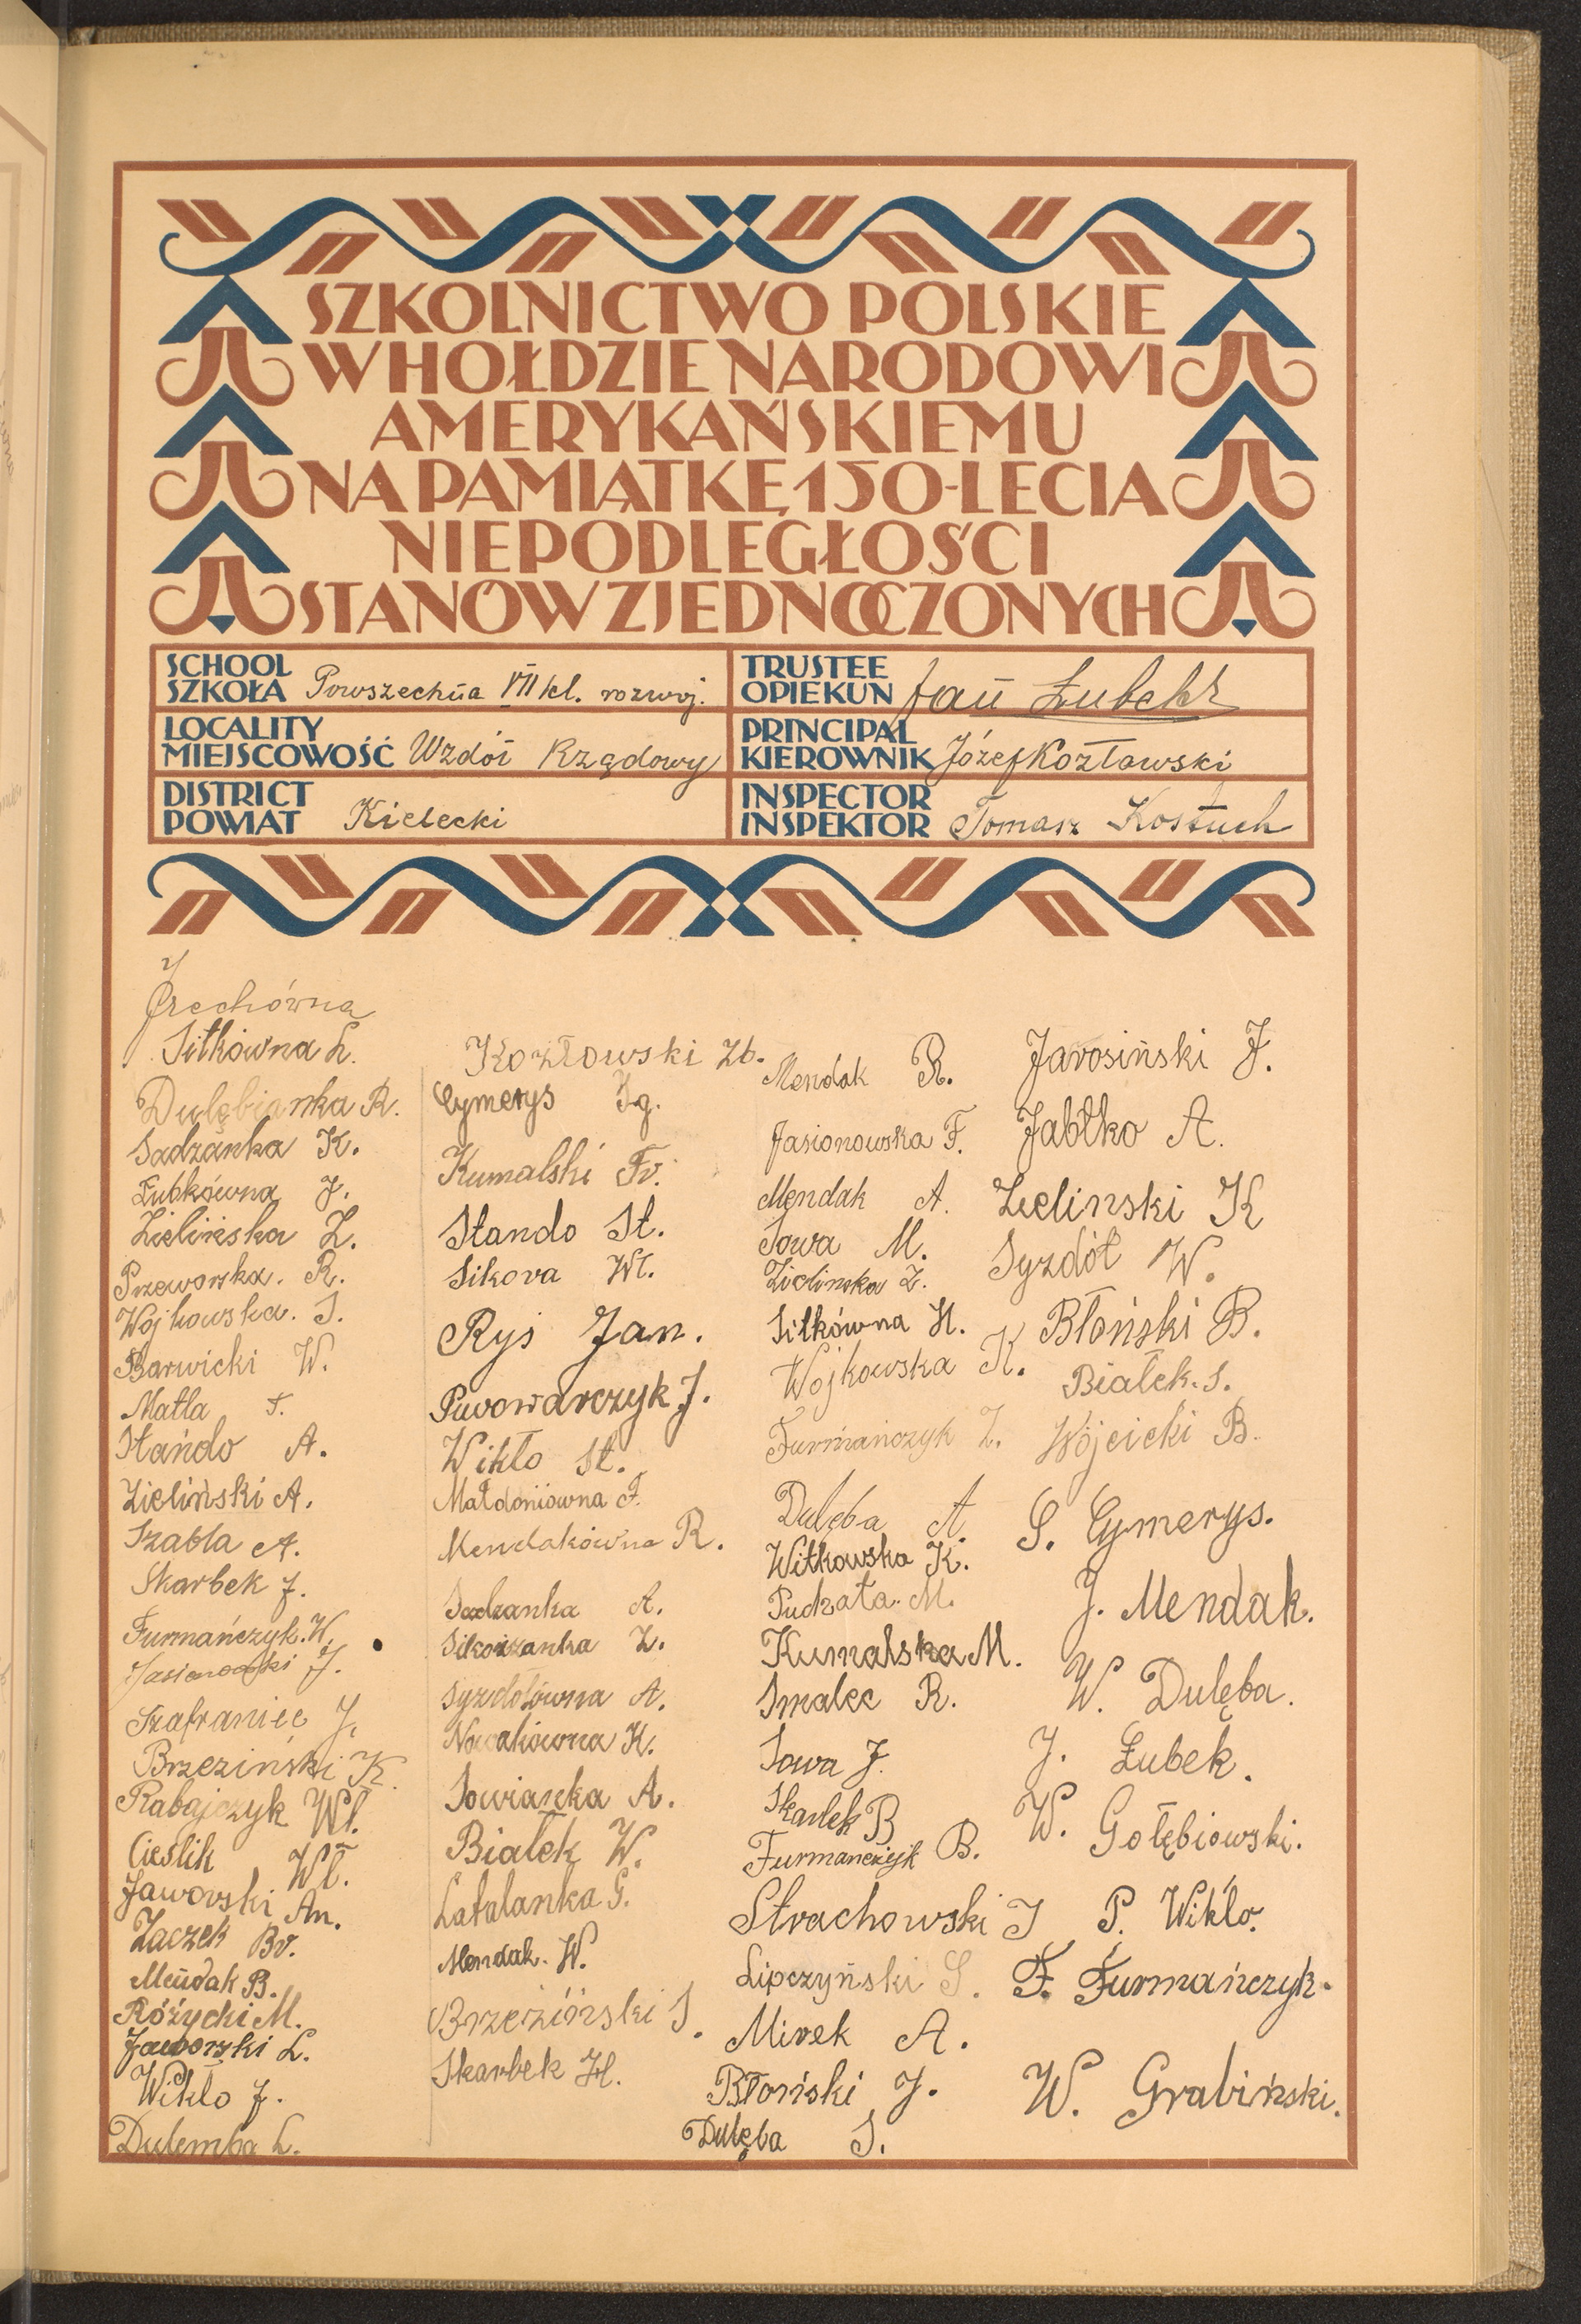 SZKOLNICTWO POLSKIE
W HOŁDZIE NARODOWI
AMERYKAŃSKIEMU
NA PAMIĄTKĘ 150-LECIA
NIEPODLEGŁOŚCI
STANÓW ZJEDNOCZONYCH
SCHOOL
SZKOŁA Powszechna VII kl. rozwoj.
TRUSTEE
OPIEKUN Jan Łubek
LOCALITY
MIEJSCOWOŚĆ Wzdół Rządowy
PRINCIPAL
KIEROWNIK Józef Kozłowski
DISTRICT
POWIAT Kielecki
INSPECTOR
INSPEKTOR Tomasz Kostuch
Sitkówna L.
Dulębianka R.
Sadzanka K.
Łubkówna J.
Zielińska Z.
Przeworska. R.
Wojkowska. S.
Barwicki W.
Matla F.
Stańdo A.
Zieliński A.
Szabla A.
Skarbek J.
Furmańczyk. W.
Jasionowski J.
Szafraniec J.
Brzeziński K.
Rabajczyk Wł.
Cieślik Wł.
Jaworski An.
Zaczek Br.
Mendak B.
Różycki M.
Jaworski L.
Wikło J.
Dulemba L.
Kozłowski Zb.
Cymerys Ig.
Kumalski Fr.
Stando St.
Sikora Wł.
Ryś Jan.
Piwowarczyk J.
Wikło St.
Małdoniówna F.
Mendakówna R.
Sadzanka A.
Sikorzanka Z.
Syzdołówna A.
Nowakówna K.
Sowianka A.
Białek W.
Latalanka G.
Mendak. W.
Brzeziński S.
Skarbek H.
Mendak R.
Jasionowska F.
Mendak A.
Sowa M.
Zielinska Z.
Sitkówna H.
Wojkowska K.
Furmańczyk Z.
Dulęba A.
Witkowska K.
Pudzata. M.
Kumalska M.
Smalec R.
Sowa J.
Skarbek B
Furmańczyk B.
Strachowski J
Lipczyński S.
Mirek A.
Błoński J.
Dulęba S.
Jarosiński J.
Jabłko A.
Zielinski K
Syzdół W.
Błoński B.
Białek. S.
Wójcicki B.
S. Cymerys.
J. Mendak.
W. Dulęba.
J. Łubek.
W. Gołębiowski.
P. Wikło.
F. Furmańczyk.
W. Grabiński.